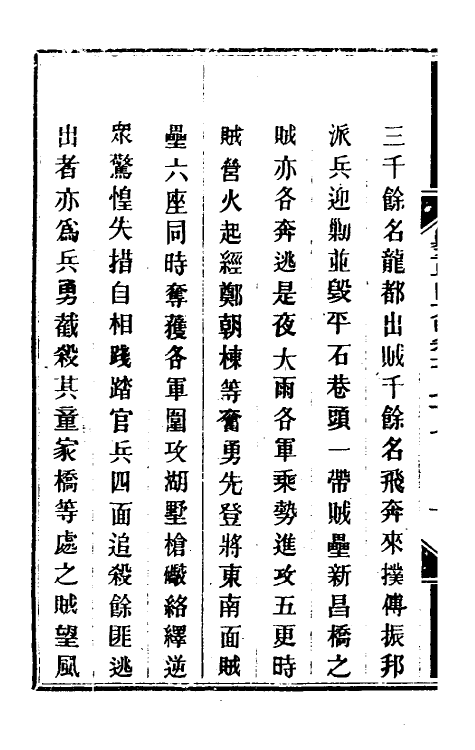 三千餘名龍都出賊千餘名飛奔來撲傅振邦
派兵迎勦並毀平石巷頭一帶賊壘新昌橋之
賊亦各奔逃是夜大雨各軍乘勢進攻五更時
賊營火起經鄭朝棟等奮勇先登將東南面賊
壘六座同時奪獲各軍圍攻湖墅槍礮絡繹逆
眾驚惶失措自相踐踏官兵四面追殺餘匪逃
出者亦為兵勇截殺其童家橋等處之賊望風